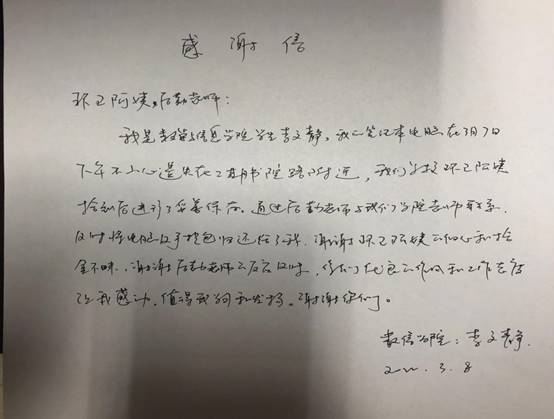 感谢信
环卫阿姨、后勤老师：
我是数学与信息学院学生李文静，我的笔记本电脑在3月7日
下午不小心遗失在二期书院路附近，我们学校环卫阿姨
捡到后进行了妥善保存。通过后勤老师与我们学院老师联系，
及时将电脑及手提包归还给了我，谢谢环卫阿姨的细心和拾
金不昧，谢谢后勤老师的及时，你们优良的作风和工作态度
让我感动，值得我们和发扬。谢谢你们。
数信学院：李文静
2022.3.8